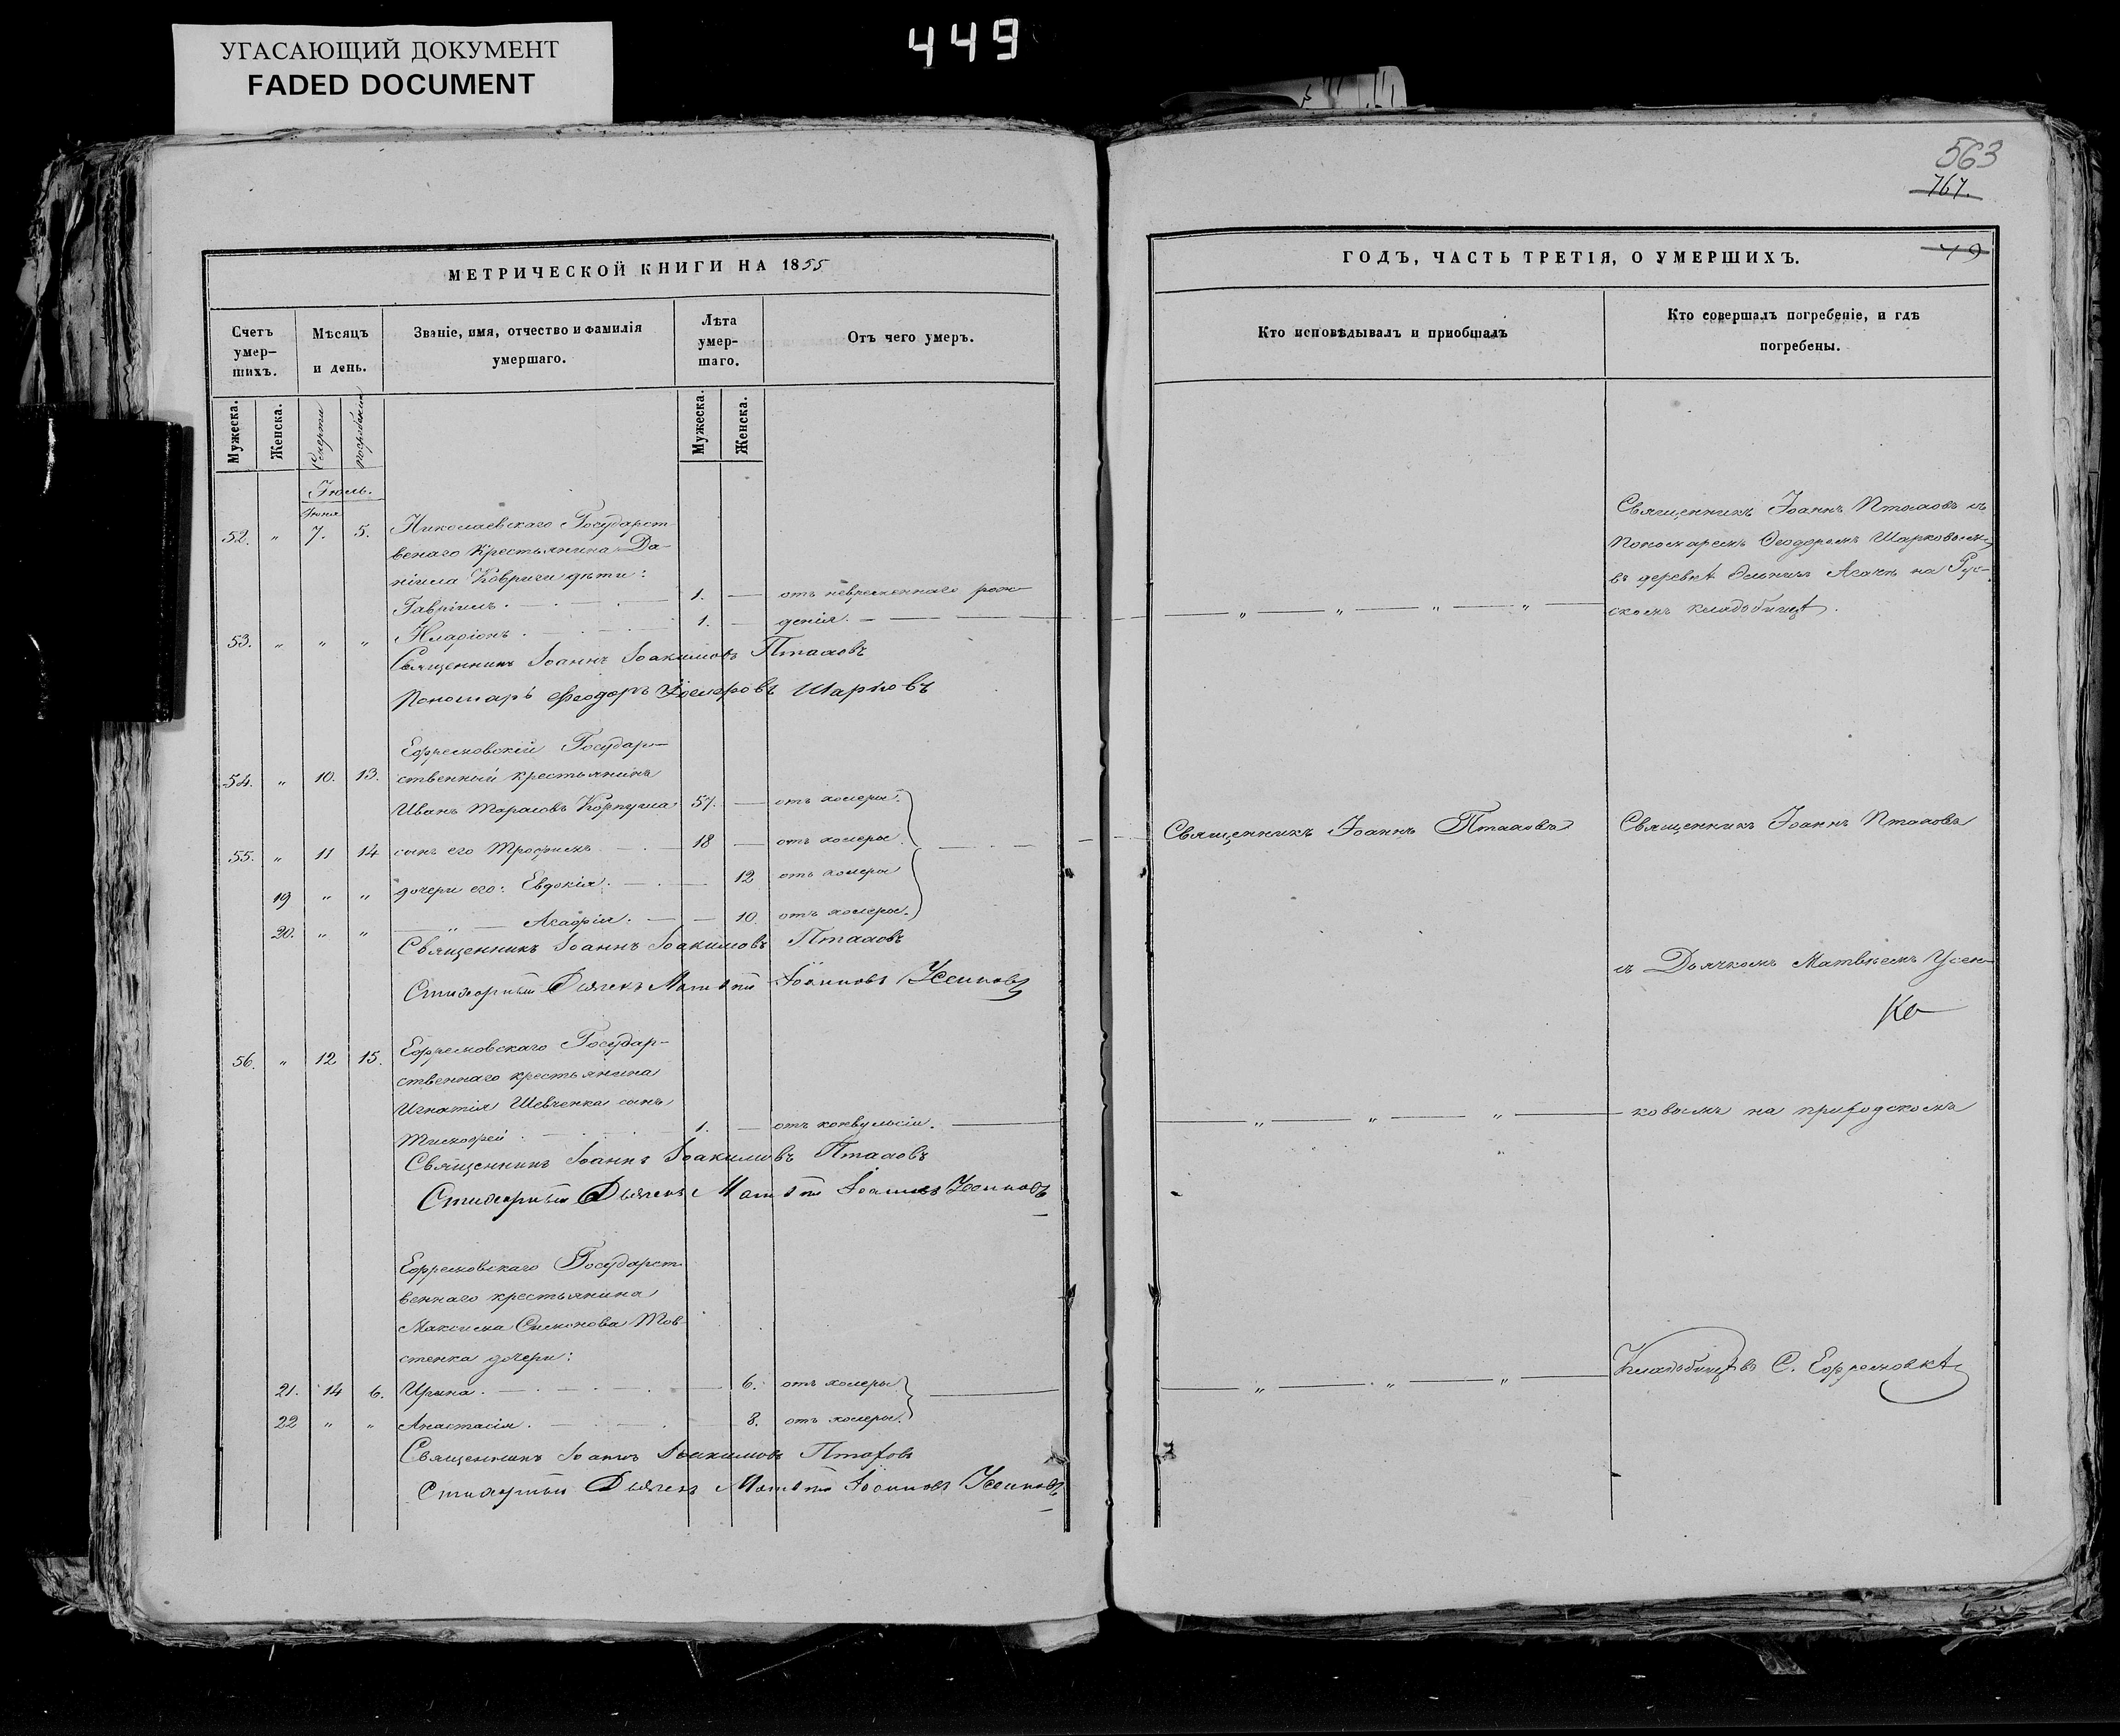 УГАСАЮЩИЙ ДОКУМЕНТ
FADED DOCUMENT
449
563
767.
МЕТРИЧЕСКОЙ КНИГИ НА 1855
Счетъ умер-шихъ.
Мѣсяцъ и день.
Званіе, имя, отчество и фамилія умершаго.
Лѣта умер-шаго.
Отъ чего умеръ.
Мужеска.
Женска.
Смерти
погребенія
Мужеска.
Женска.
Іюль.
Іюня
52. " 7. 5. Николаевскаго Государст-
венаго Крестьянина Да-
ніила Ковриги дѣти:
Гавріилъ. 1. — отъ невременнаго рож-
53. " " " Иларіонъ. 1. — денія.
Священникъ Іоаннъ Іоакимовъ Птаховъ
Пономарь Феодоръ Шарковъ
Ефремовскій Государ-
54. " 10. 13. ственный крестьянинъ
Иванъ Тарасовъ 57. — отъ холеры.
55. " 11 14 сынъ его Трофимъ 18 — отъ холеры.
19 " " дочери его: Евдокія. 12 отъ холеры
20. " " — " — Агафія. 10. отъ холеры.
Священникъ Іоаннъ Іоакимовъ Птаховъ
Стихарный Дьячекъ Матвѣй Іоанновъ Усенковъ
Ефремовскаго Государ-
56. " 12 15. ственнаго крестьянина
Игнатія Шевченка сынъ
Тимофей. 1. — отъ конвульсіи.
Священникъ Іоаннъ Іоакимовъ Птаховъ
Стихарный Дьячекъ Матвѣй Іоанновъ Усенковъ
Ефремовскаго Государст-
веннаго крестьянина
Максима Симонова Тов-
стенка дочери:
21. 14 6. Ирина. 6. отъ холеры
22 " " Анастасія. 8. отъ холеры.
Священникъ Іоаннъ Іоакимовъ Птаховъ
Стихарный Дьячекъ Матвѣй Іоанновъ Усенковъ
ГОДЪ, ЧАСТЬ ТРЕТІЯ, О УМЕРШИХЪ.
49
Кто исповѣдывалъ и приобщалъ
Кто совершалъ погребеніе, и гдѣ
погребены.
Священникъ Іоаннъ Птаховъ съ
Пономаремъ Феодоромъ Шарковымъ
въ деревнѣ на Рус-
скомъ кладбищѣ.
Священникъ Іоаннъ Птаховъ
Священникъ Іоаннъ Птаховъ
съ Дьячкомъ Матвѣемъ Усен-
ко
ковымъ на приходскомъ
Кладбищѣ въ С. Ефремовкѣ